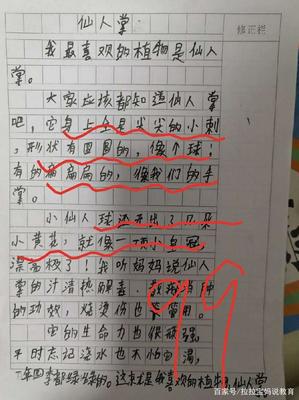 仙人掌
修正栏
我最喜欢的植物是仙人
掌。
大家应该都知道仙人掌
吧，它身上全是尖尖的小刺
，形状有圆圆的，像个球；
有的扁扁的，像我们的手
掌。
小仙人球还开出了几朵
小黄花，就像一顶小皇冠，
漂亮极了！我听妈妈说仙人
掌的汁清热解毒、消肿
的功效，烧烫伤也管用。
它的生命力也很顽强
平时忘记浇水也不怕它渴，
一年四季都绿绿的。这就是我喜欢的植物仙人掌
99
百家号/拉拉宝妈说教育